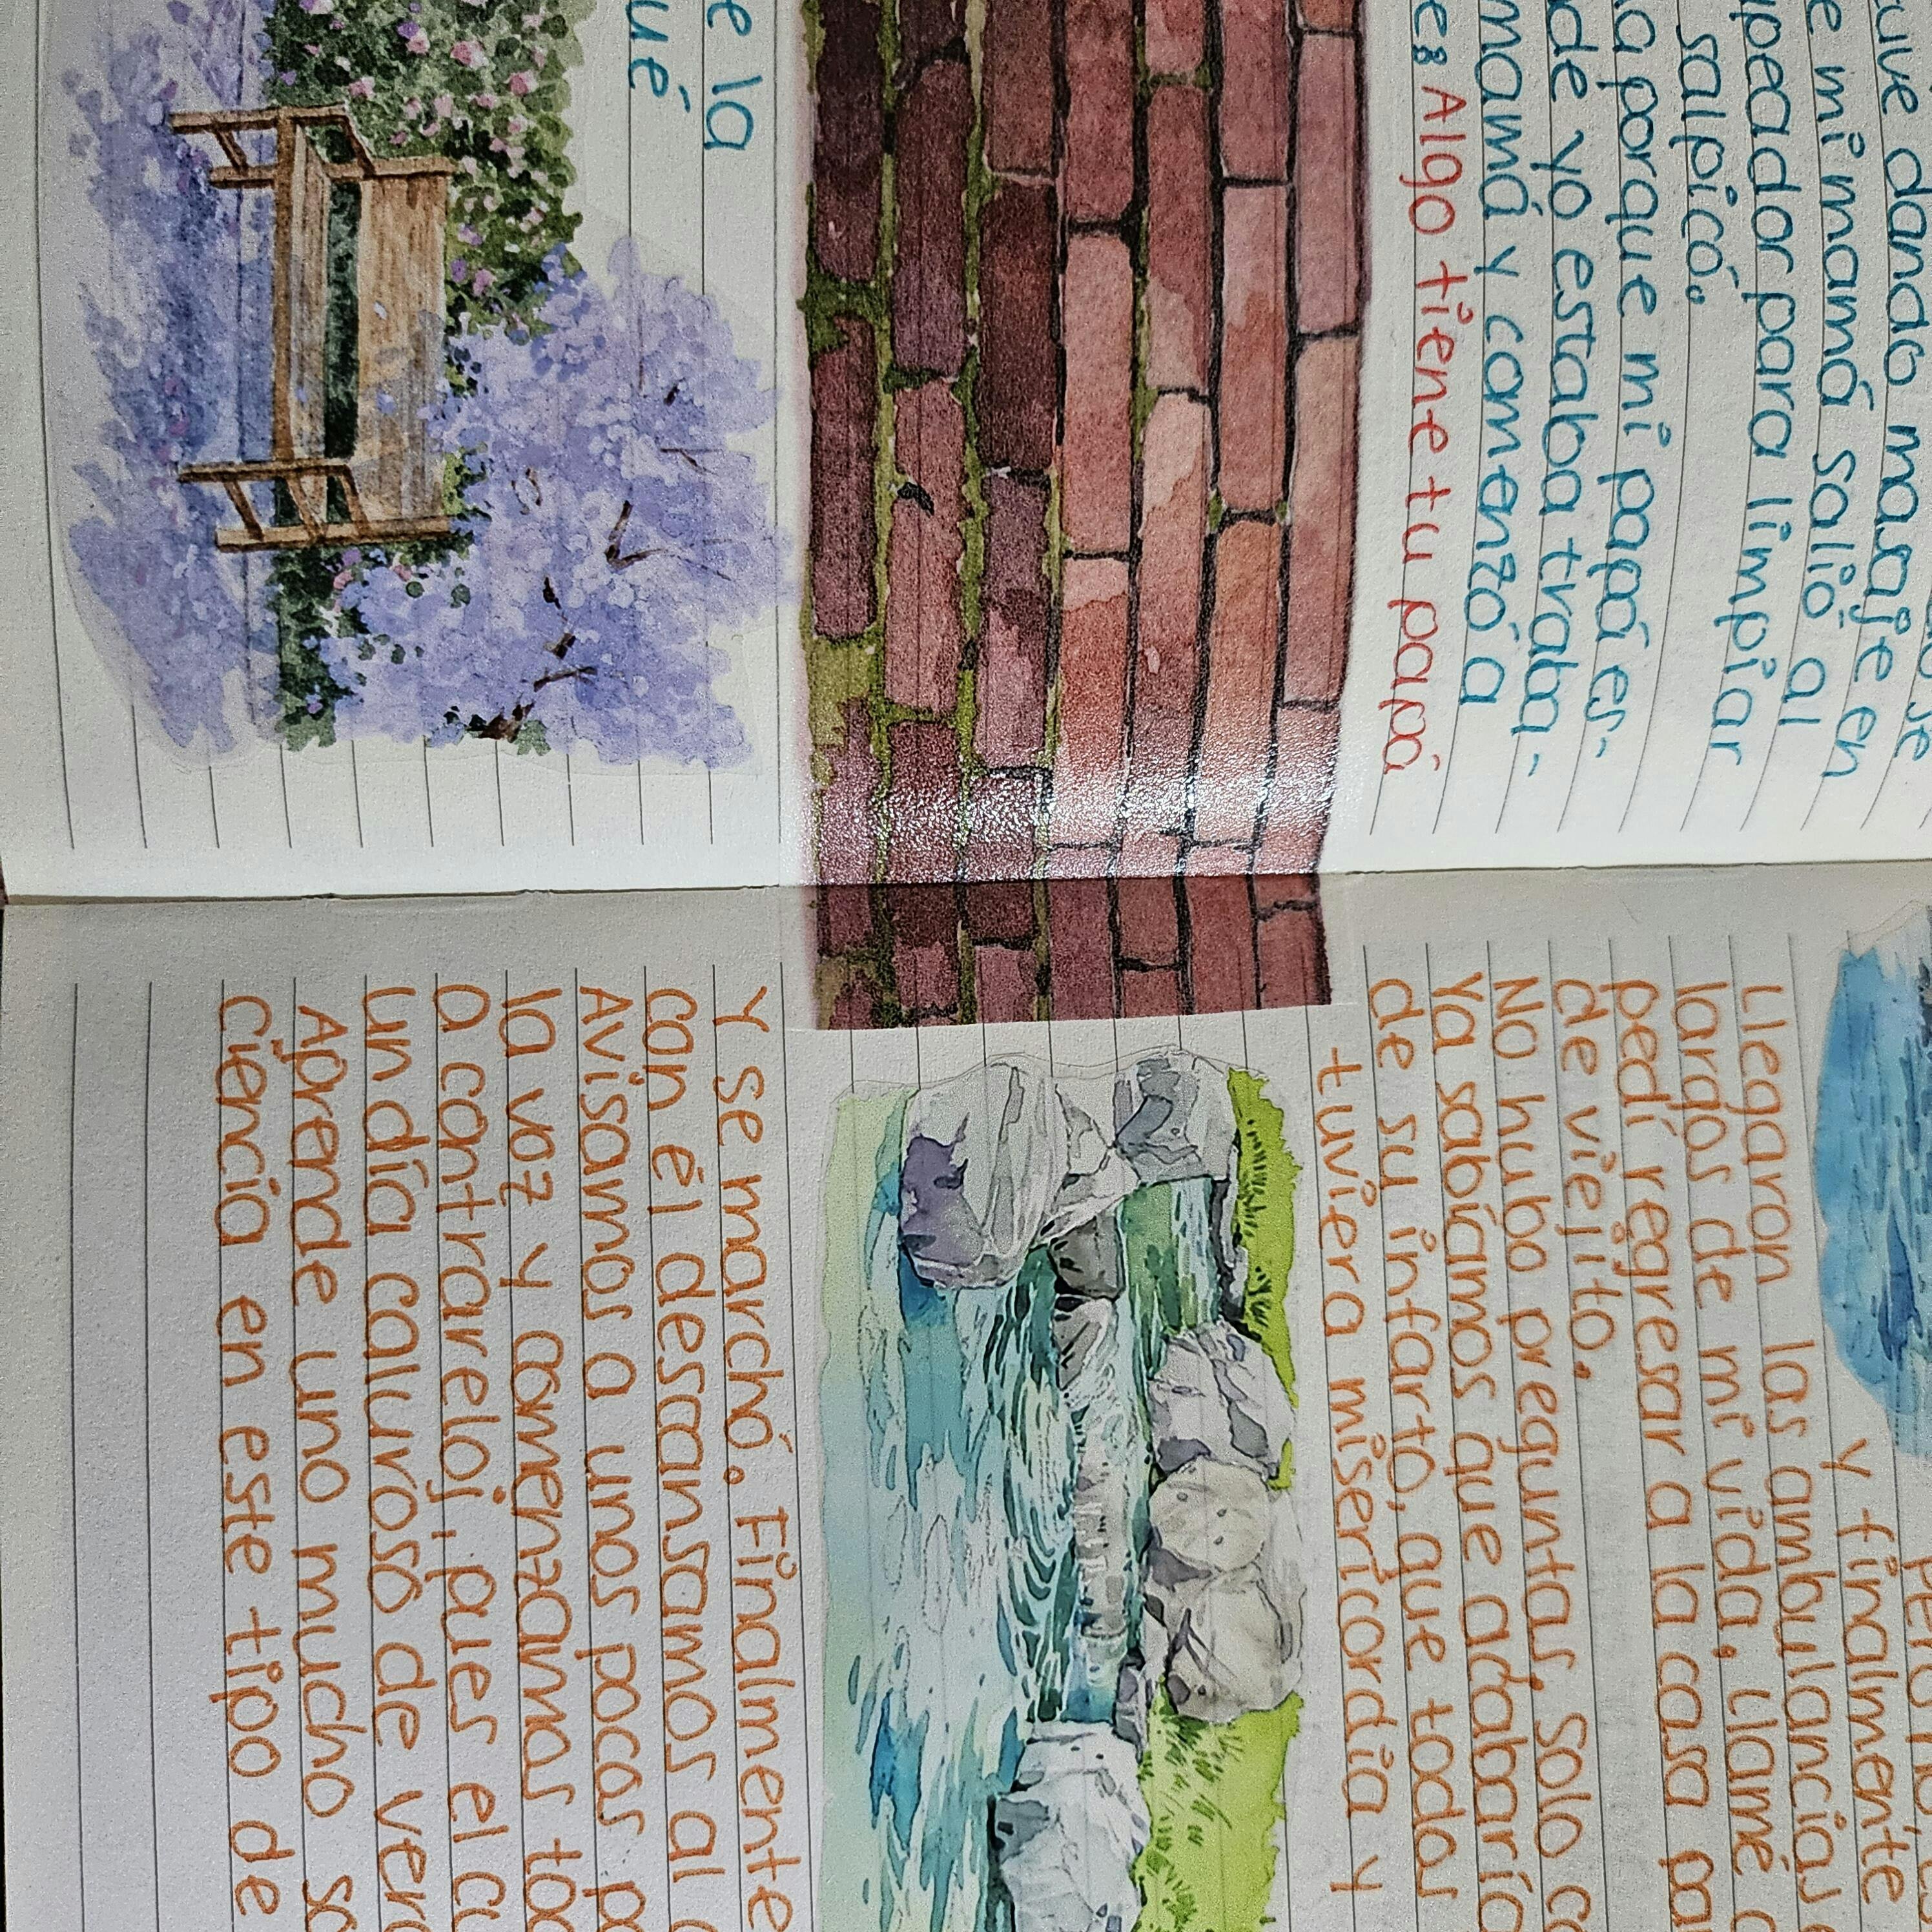 tuve dando masaje en
e mi mamá salió al
peador para limpiar
salpicó.
a porque mi papá es-
de yo estaba traba-
mamá y comenzó a
e: Algo tiene tu papá
e la
ué
y finalmente
Llegaron las ambulancias
largos de mi vida. Llamé
pedí regresar a la casa pa
de viejito.
No hubo preguntas. Solo co
Ya sabíamos que acabaría
de su infarto, que todos
tuviera misericordia y
Y se marchó. Finalmente
con él descansamos al
Avisamos a unos pocos p
la voz y comenzamos to
a contrareloj, pues el cu
un día caluroso de vera
Aprende uno mucho so
ciencia en este tipo de